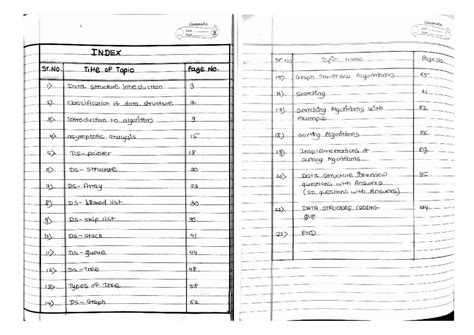 classmate
Date
Page
INDEX
Sr.No. Title of Topic Page No.
1). Data structure Introduction 3
2). Classification of data structure 7
3). Introduction to algorithm 9
4). asymptotic analysis 15
5). DS - pointer 18
6). DS - structure 20
7). DS - Array 23
8). DS - linked list 30
9). DS - skip list 35
10). DS - stack 41
11). DS - queue 44
12). DS - Tree 48
13). Types of Tree 58
14). DS - Graph 62
classmate
Date
Page
Sr No Topic Name Page No.
15). Graph Traversal Algorithms
16). Searching
17). Searching Algorithms with 82
example
18). Sorting Algorithms 86
19). Implementations of 89
sorting Algorithms
20). Data structure Interview 95
questions with Answers
(50 questions with Answers)
21). DATA STRUCTURE CODING 104
QUE.
22). END